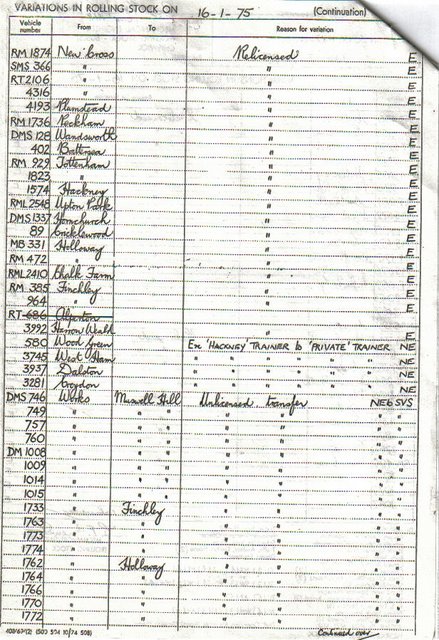 VARIATIONS IN ROLLING STOCK ON 16-1-75 (Continuation)
Vehicle number From To Reason for variation
RM 1874 New Cross Relicensed E
SMS 366 " " E
RT 2106 " " E
4316 " " E
4193 Plumstead " E
RM 1736 Peckham " E
DMS 128 Wandsworth " E
402 Battersea " E
RM 929 Tottenham " E
1823 " " E
1574 Hackney " E
RML 2548 Upton Park " E
DMS 1337 Hornchurch " E
89 Cricklewood " E
MB 331 Holloway " E
RM 472 " " E
RML 2410 Chalk Farm " E
RM 385 Finchley " E
964 " " E
RT 686 Alperton
3992 Harrow Weald " E
580 Wood Green Ex 'HACKNEY' TRAINER to 'PRIVATE' TRAINER NE
3745 West Ham " " " " " " NE
3937 Dalston " " " " " " NE
3281 Croydon " " " " " " NE
DMS 746 Works Muswell Hill Unlicensed transfer NE6 SVS
749 " " " " " " "
757 " " " " " " "
760 " " " " " " "
DM 1008 " " " " " " "
1009 " " " " " " "
1014 " " " " " " "
1015 " " " " " " "
1733 " Finchley " " " "
1763 " " " " " "
1773 " " " " " "
1774 " " " " " "
1762 " Holloway " " " "
1764 " " " " " "
1766 " " " " " "
1770 " " " " " "
1772 " " " " " "
Continued over